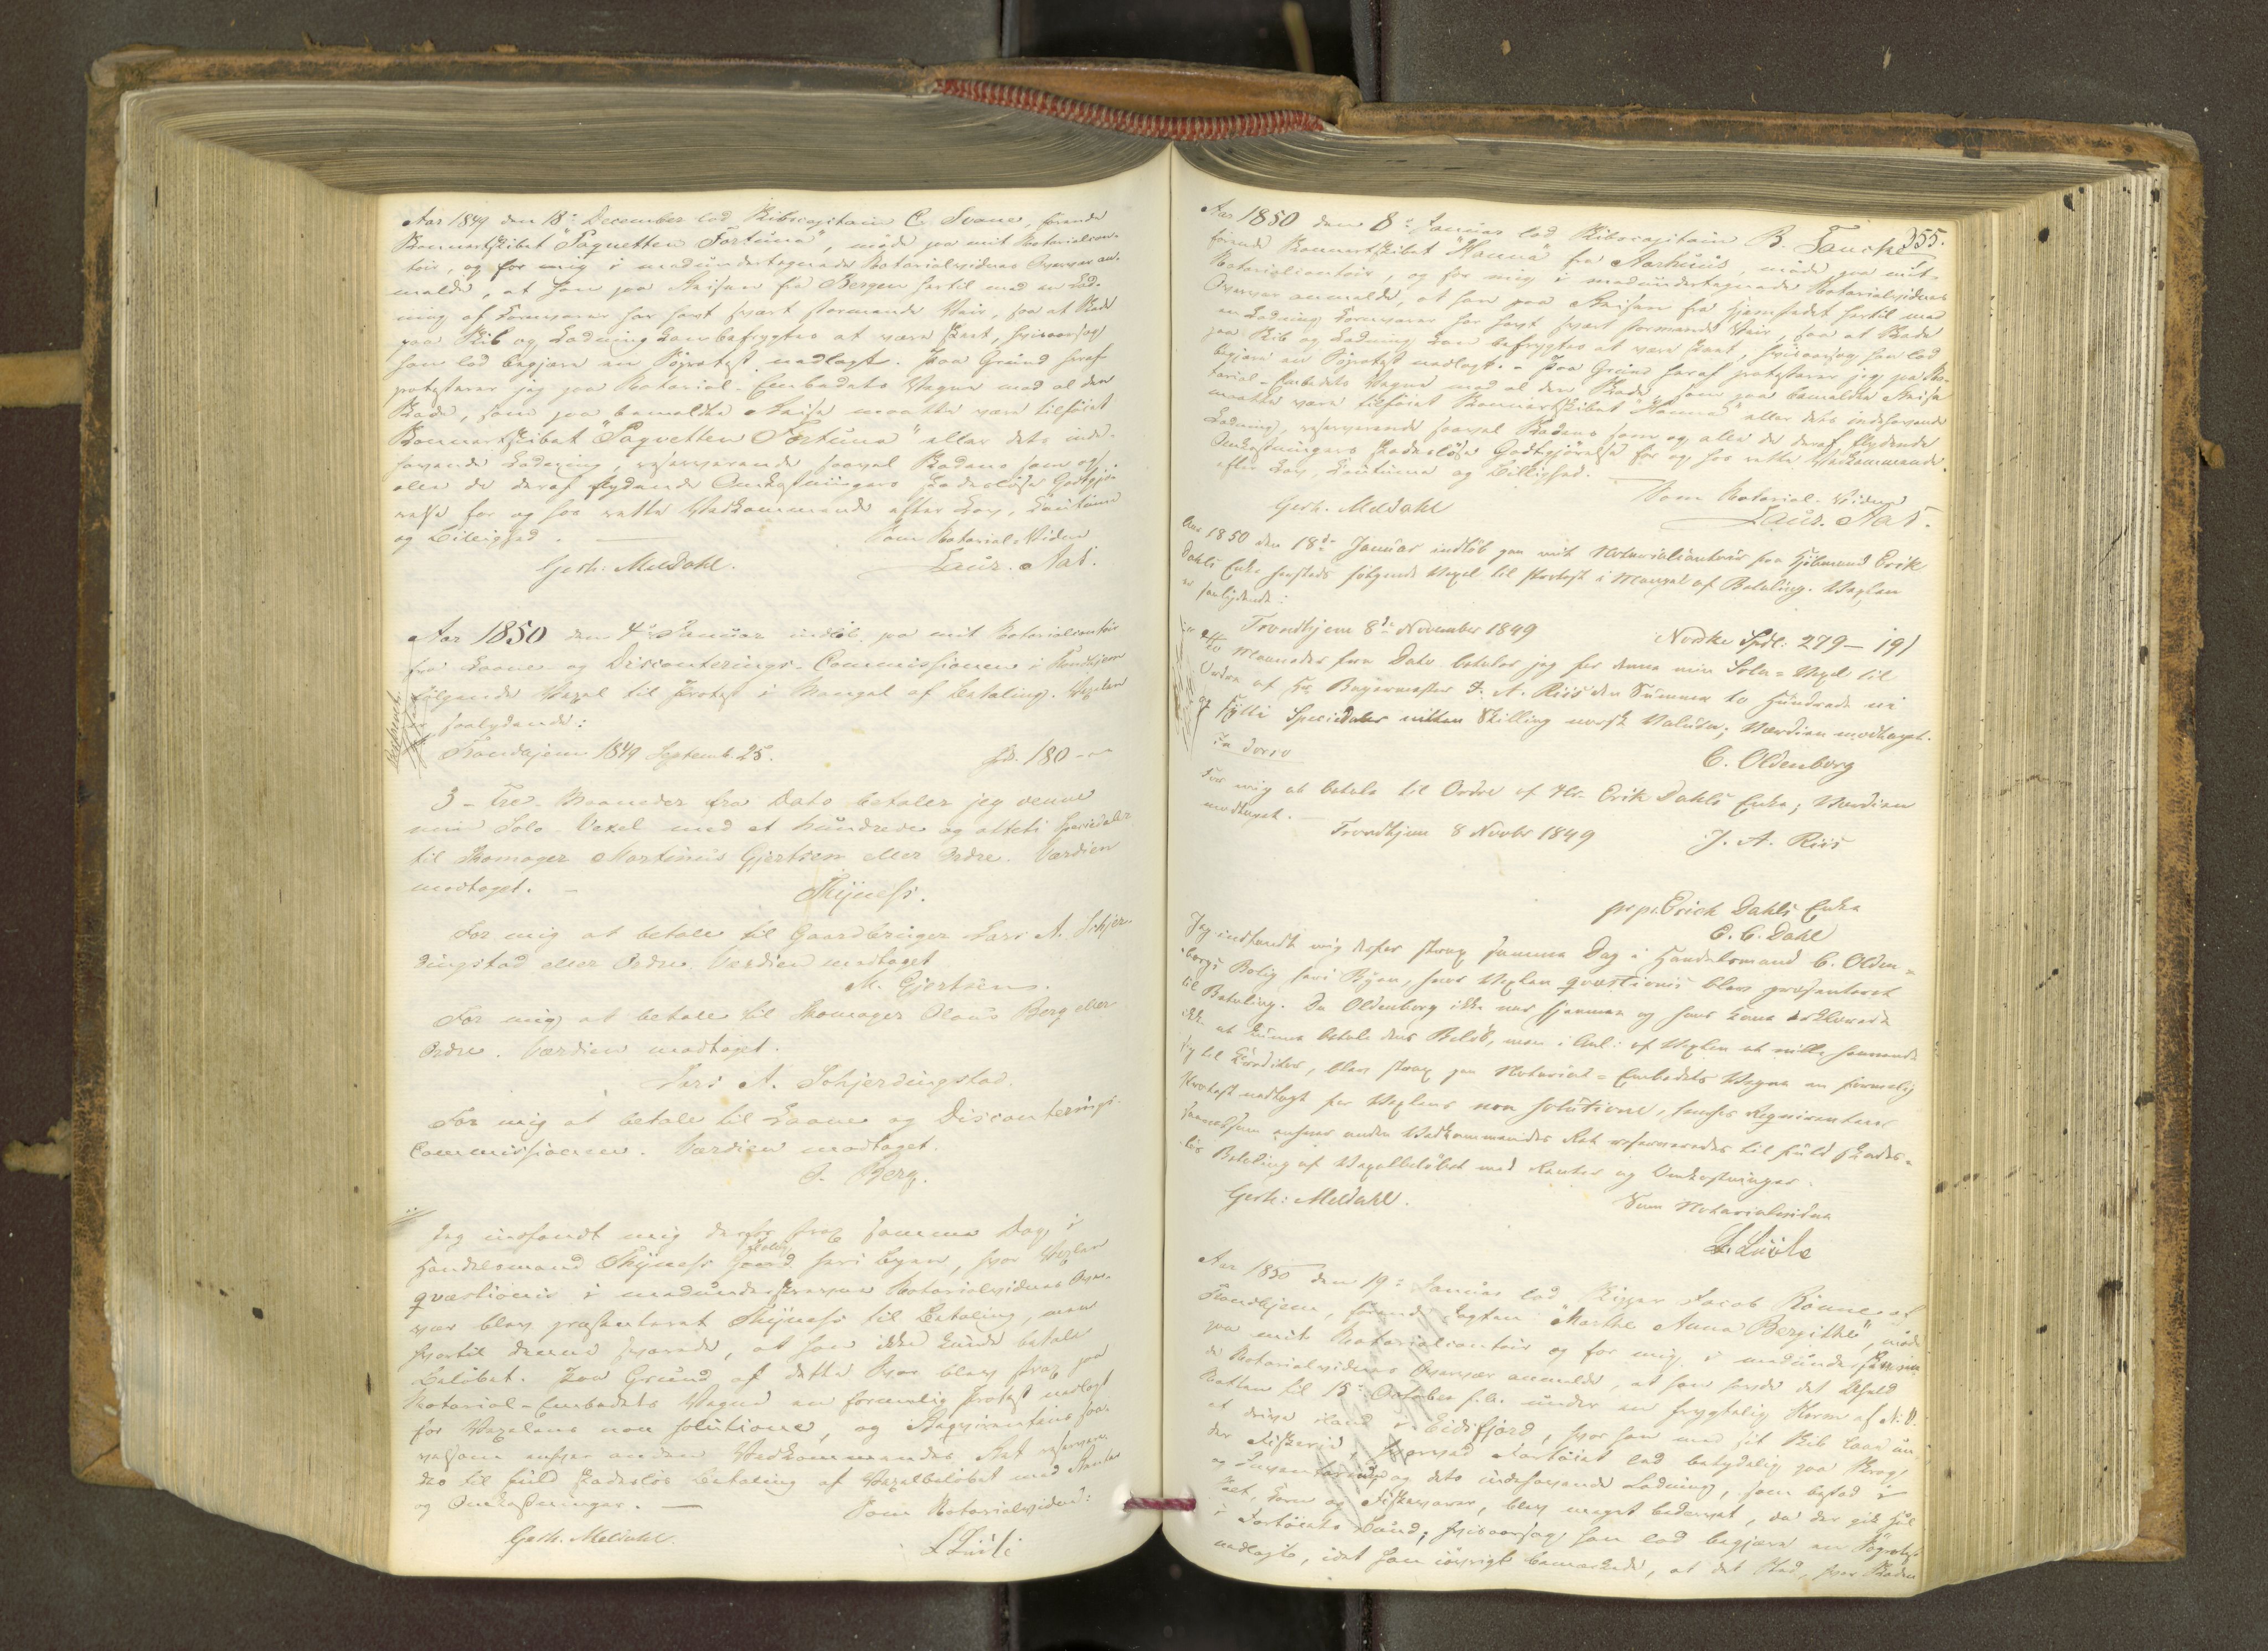 Aar 1849 den 18de December lod Skibscapitain C. Svane, førende
Konnertskibet "Paquetten Fortüna", møde paa mit Notarialcon-
toir, og for mig i medündertegnede Notarialvidnes Overvær an-
meldte, at han paa Reisen fra Bergen hertil med en Lad-
ning af Kornvarer har havt svært stormende Veir, saa at Skade
paa Skib og Ladning kan befrygtes at være skeet, hvisaarsag
han lod begjære en Søprotest nedlagt. Paa Gründ heraf
protesterer jeg paa Notarial-Embedets Vegne mod al den
Skade, som paa bemeldte Reise maatte være tilføiet
Konnertskibet "Paqvetten Fortüna" eller dets inde-
havende Ladning, reserverende saavel Skadens som og
alle de deraf flydende Omkostningers skadesløse Godtgjø-
relse for og hos rette Vedkommende efter Lov, Coutüme
og Billighed.
Som Notarial-Vidne
Gerh. Meldahl.
Laur. Aas.
Aar 1850 den 4de Januar indløb paa mit Notarialcontoir
fra Laane- og Disconterings-Commissionen i Trondhjem
følgende Vexel til Protest i Mangel af Betaling. Vexelen
er saalydende:
Trondhjem 1849 Septemb. 25.
Spd. 180 -
3 - Tre - Maaneder fra Dato betaler jeg denne
min Solo-Vexel med et hündrede og otteti Speciedaler
til Skomager Martinüs Gjertsen eller Ordre. Værdien
modtaget. -
Thyness.
For mig at betale til Gaardbruger Lars A. Schjer-
dingstad eller Ordre. Værdien modtaget
M. Gjertsen.
For mig at betale til Skomager Olaüs Berg eller
Ordre. Værdien modtaget.
Lars A. Schjerdingstad.
For mig at betale til Laane og Disconterings-
Commissionen. Værdien modtaget.
O. Berg.
Jeg indfandt mig derfor strax samme Dag i
Handelsmand Thyness heri Byen, hvor Vexlen
qvæstionis i medünderskrevne Notarialvidnes Over-
vær blev præsenteret Thyness til Betaling, men
hvortil denne svarede, at han ikke künde betale
Beløbet. Paa Gründ af dette Svar blev strax paa
Notarial-Embedets Vegne en formelig Protest nedlagt
for Vexelens non solütione, og Reqvirentens saa-
velsom enhver anden Vedkommendes Ret reservere-
des til füld skadesløs Betaling af Vexelbeløbet med Renter
og Omkostninger. -
Som Notarialvidne:
Gerh. Meldahl.
355.
Aar 1850 den 8de Januar lod Skibscapitain B.
førende Konnertskibet "Hanna" fra Aarhuüs, møde paa mit
Notarialcontoir, og for mig i medündertegnede Notarialvidnes
Overvær anmeldte, at han paa Reisen fra Hjemstedet hertil med
en Ladning Kornvarer har havt svært stormende Veir, saa at Skade
paa Skib og Ladning kan befrygtes at være skeet, hvisaarsag han lod
begjære en Søprotest nedlagt. - Paa Gründ heraf protesterer jeg paa No-
tarial-Embedets Vegne mod al den Skade, som paa bemeldte Reise
maatte være tilføiet Konnertskibet "Hanna" eller dets indehavende
Ladning, reserverende saavel Skadens som og alle de deraf flydende
Omkostningers skadesløse Godtgjørelse for og hos rette Vedkommende
efter Lov, Coutüme og Billighed. -
Som Notarial-Vidne
Gerh. Meldahl
Laur. Aas.
Aar 1850 den 18de Januar indløb paa mit Notarialcontoir fra Kjøbmand Erik
Dahls Enke hersteds følgende Vexel til Protest i Mangel af Betaling. Vexlen
er saalydende:
Trondhjem 8de November 1849
Norske Spdl: 279 - 19/
Maaneder fra Dato betaler jeg for denne min Sola-Vexel til
Ordre af Hr. Bagermester J. A. Riis den Summa to Hündrede ni
og sytti Speciedaler nitten Skilling norsk Valüta; Værdien modtaget.
C. Oldenborg
In dorso
For mig at betale til Ordre af Hr. Erik Dahls Enke; Værdien
modtaget. -
Trondhjem 8 Novbr 1849
J. A. Riis
pr pr. Erich Dahls Enke
C. C. Dahl
Jeg indfandt mig derfor strax samme Dag i Handelsmand C. Olden-
borgs Bolig heri Byen, hvor Vexlen qvæstionis blev præsenteret
til Betaling. Da Oldenborg ikke var hjemme og hans Kone erklærede
ikke at kunne betale dens Beløb, men i Anl: af Vexlen at ville henvende
sig til Creditor, blev strax paa Notarial-Embedets Vegne en formelig
Protest nedlagt for Vexlens non solütione, hvorhos Reqvirentens
saavelsom enhver anden Vedkommendes Ret reserveredes til füld skades-
løs Betaling af Vexelbeløbet med Renter og Omkostninger.
Gerh: Meldahl.
Som Notarialvidne
Aar 1850 den 19de Januar lod Skipper Jacob Rönne af
Trondhjem, førende Jagten "Marthe Anna Bergithe", møde
paa mit Notarialcontoir og for mig i medünderskreven-
de Notarialvidnes Overvær anmelde, at han havde det Uheld
Natten til 15de October f. A. ünder en frygtelig Storm af N.V.
at drive iland i Eidsfjord, hvor han med sit Skib laae ün-
der Fiskeri, hvorved Fartøiet led betydelig paa Skrog
og Inventarium, og dets indehavende Ladning, som bestod i
Salt, Korn og Fiskevarer, blev meget bedervet, da der gik Hül
i Fartøiets Bünd; hvisaarsag han lod begjære en Søprotest
nedlagt, idet han iøvrigt bemærkede, at det Sted, hvor Skaden